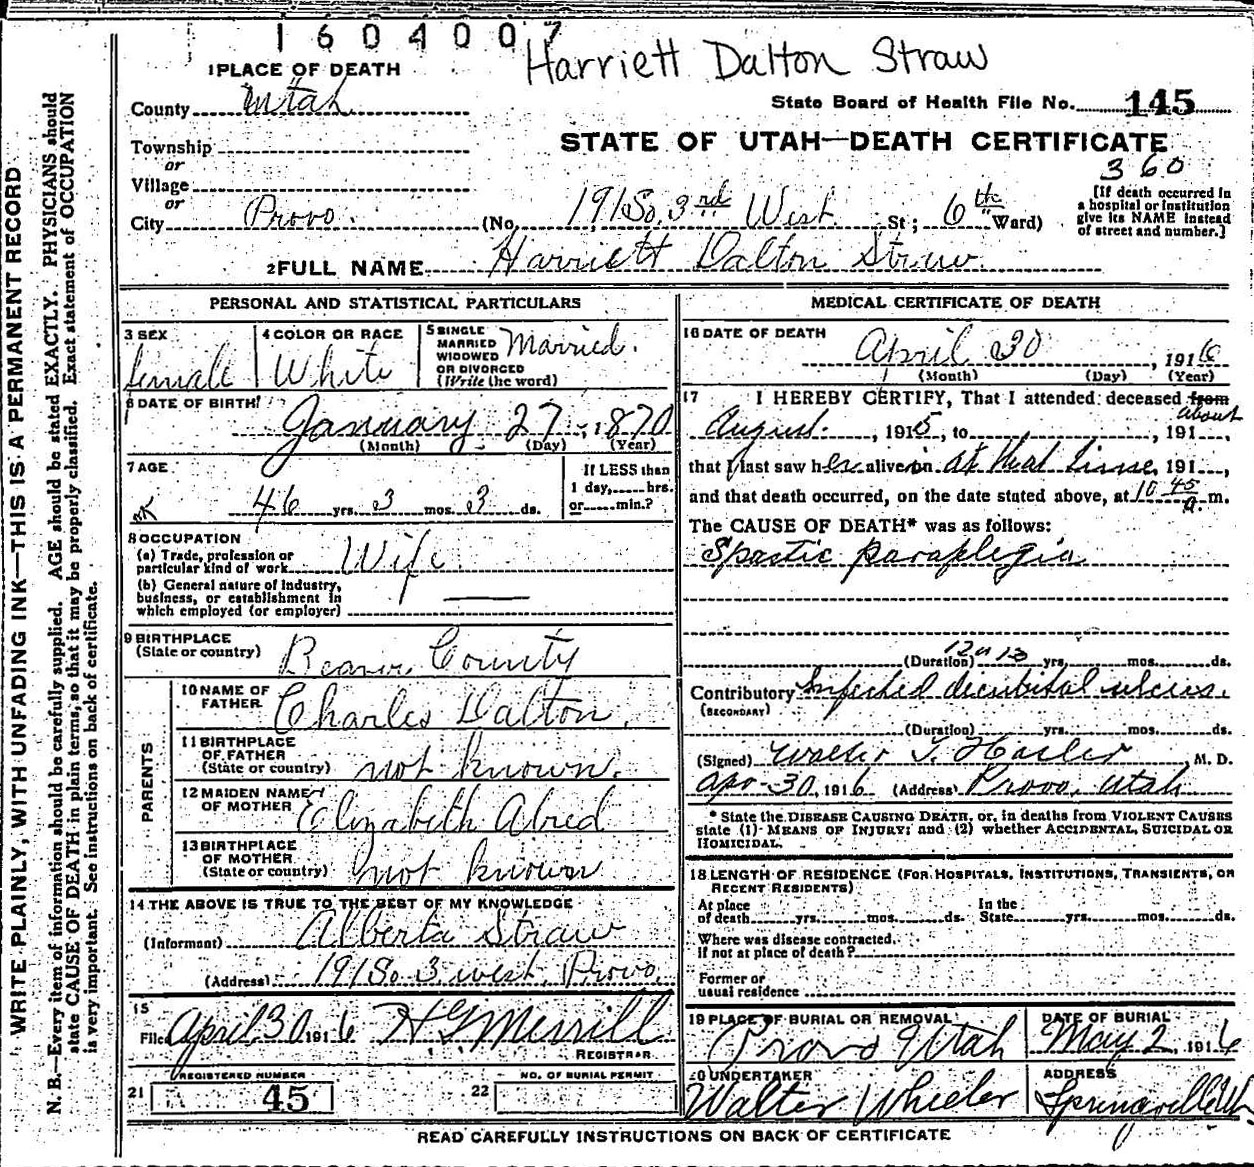 1604007
Harriett Dalton Straw
1 PLACE OF DEATH
County Utah
State Board of Health File No. 145
Township
or
Village
or
City Provo.
STATE OF UTAH—DEATH CERTIFICATE
360
[If death occurred in
a hospital or institution
give its NAME instead
of street and number.]
(No. 191 So. 3rd West St; 6th Ward)
2 FULL NAME Harriett Dalton Straw.
PERSONAL AND STATISTICAL PARTICULARS
3 SEX
female
4 COLOR OR RACE
White
5 SINGLE
MARRIED
WIDOWED
OR DIVORCED
(Write the word)
Married.
6 DATE OF BIRTH
January 27, 1870
(Month) (Day) (Year)
7 AGE
46 yrs. 3 mos. 3 ds.
If LESS than
1 day, hrs.
or min.?
8 OCCUPATION
(a) Trade, profession or
particular kind of work Wife
(b) General nature of industry,
business, or establishment in
which employed (or employer)
9 BIRTHPLACE
(State or country) Beaver County
PARENTS
10 NAME OF
FATHER Charles Dalton.
11 BIRTHPLACE
OF FATHER
(State or country) not known.
12 MAIDEN NAME
OF MOTHER Elizabeth Alred
13 BIRTHPLACE
OF MOTHER
(State or country) not known
14 THE ABOVE IS TRUE TO THE BEST OF MY KNOWLEDGE
(Informant) Alberta Straw
(Address) 191 So 3 west, Provo.
15
Filed April 30 1916 H G Merrill
REGISTRAR
REGISTERED NUMBER
21 45
NO. OF BURIAL PERMIT
22
MEDICAL CERTIFICATE OF DEATH
16 DATE OF DEATH
April 30, 1916
(Month) (Day) (Year)
17 I HEREBY CERTIFY, That I attended deceased from
about
August, 1915, to , 191 ,
that I last saw her alive on at that time, 191 ,
and that death occurred, on the date stated above, at 10 45 a. m.
The CAUSE OF DEATH* was as follows:
Spastic paraplegia
(Duration) 12 or 13 yrs. mos. ds.
Contributory Infected decubital ulcers.
(SECONDARY)
(Duration) yrs. mos. ds.
(Signed) Walter T. Hasler, M. D.
Apr-30, 1916 (Address) Provo, Utah
* State the DISEASE CAUSING DEATH, or, in deaths from VIOLENT CAUSES
state (1) MEANS OF INJURY; and (2) whether ACCIDENTAL, SUICIDAL OR
HOMICIDAL.
18 LENGTH OF RESIDENCE (FOR HOSPITALS, INSTITUTIONS, TRANSIENTS, OR
RECENT RESIDENTS)
At place
of death yrs. mos. ds.
In the
State yrs. mos. ds.
Where was disease contracted,
if not at place of death?
Former or
usual residence
19 PLACE OF BURIAL OR REMOVAL
Provo Utah
DATE OF BURIAL
May 2, 1916
20 UNDERTAKER
Walter Wheeler
ADDRESS
Springville Ut
READ CAREFULLY INSTRUCTIONS ON BACK OF CERTIFICATE
WRITE PLAINLY, WITH UNFADING INK—THIS IS A PERMANENT RECORD
N. B.—Every item of information should be carefully supplied. AGE should be stated EXACTLY. PHYSICIANS should
state CAUSE OF DEATH in plain terms, so that it may be properly classified. Exact statement of OCCUPATION
is very important. See instructions on back of certificate.